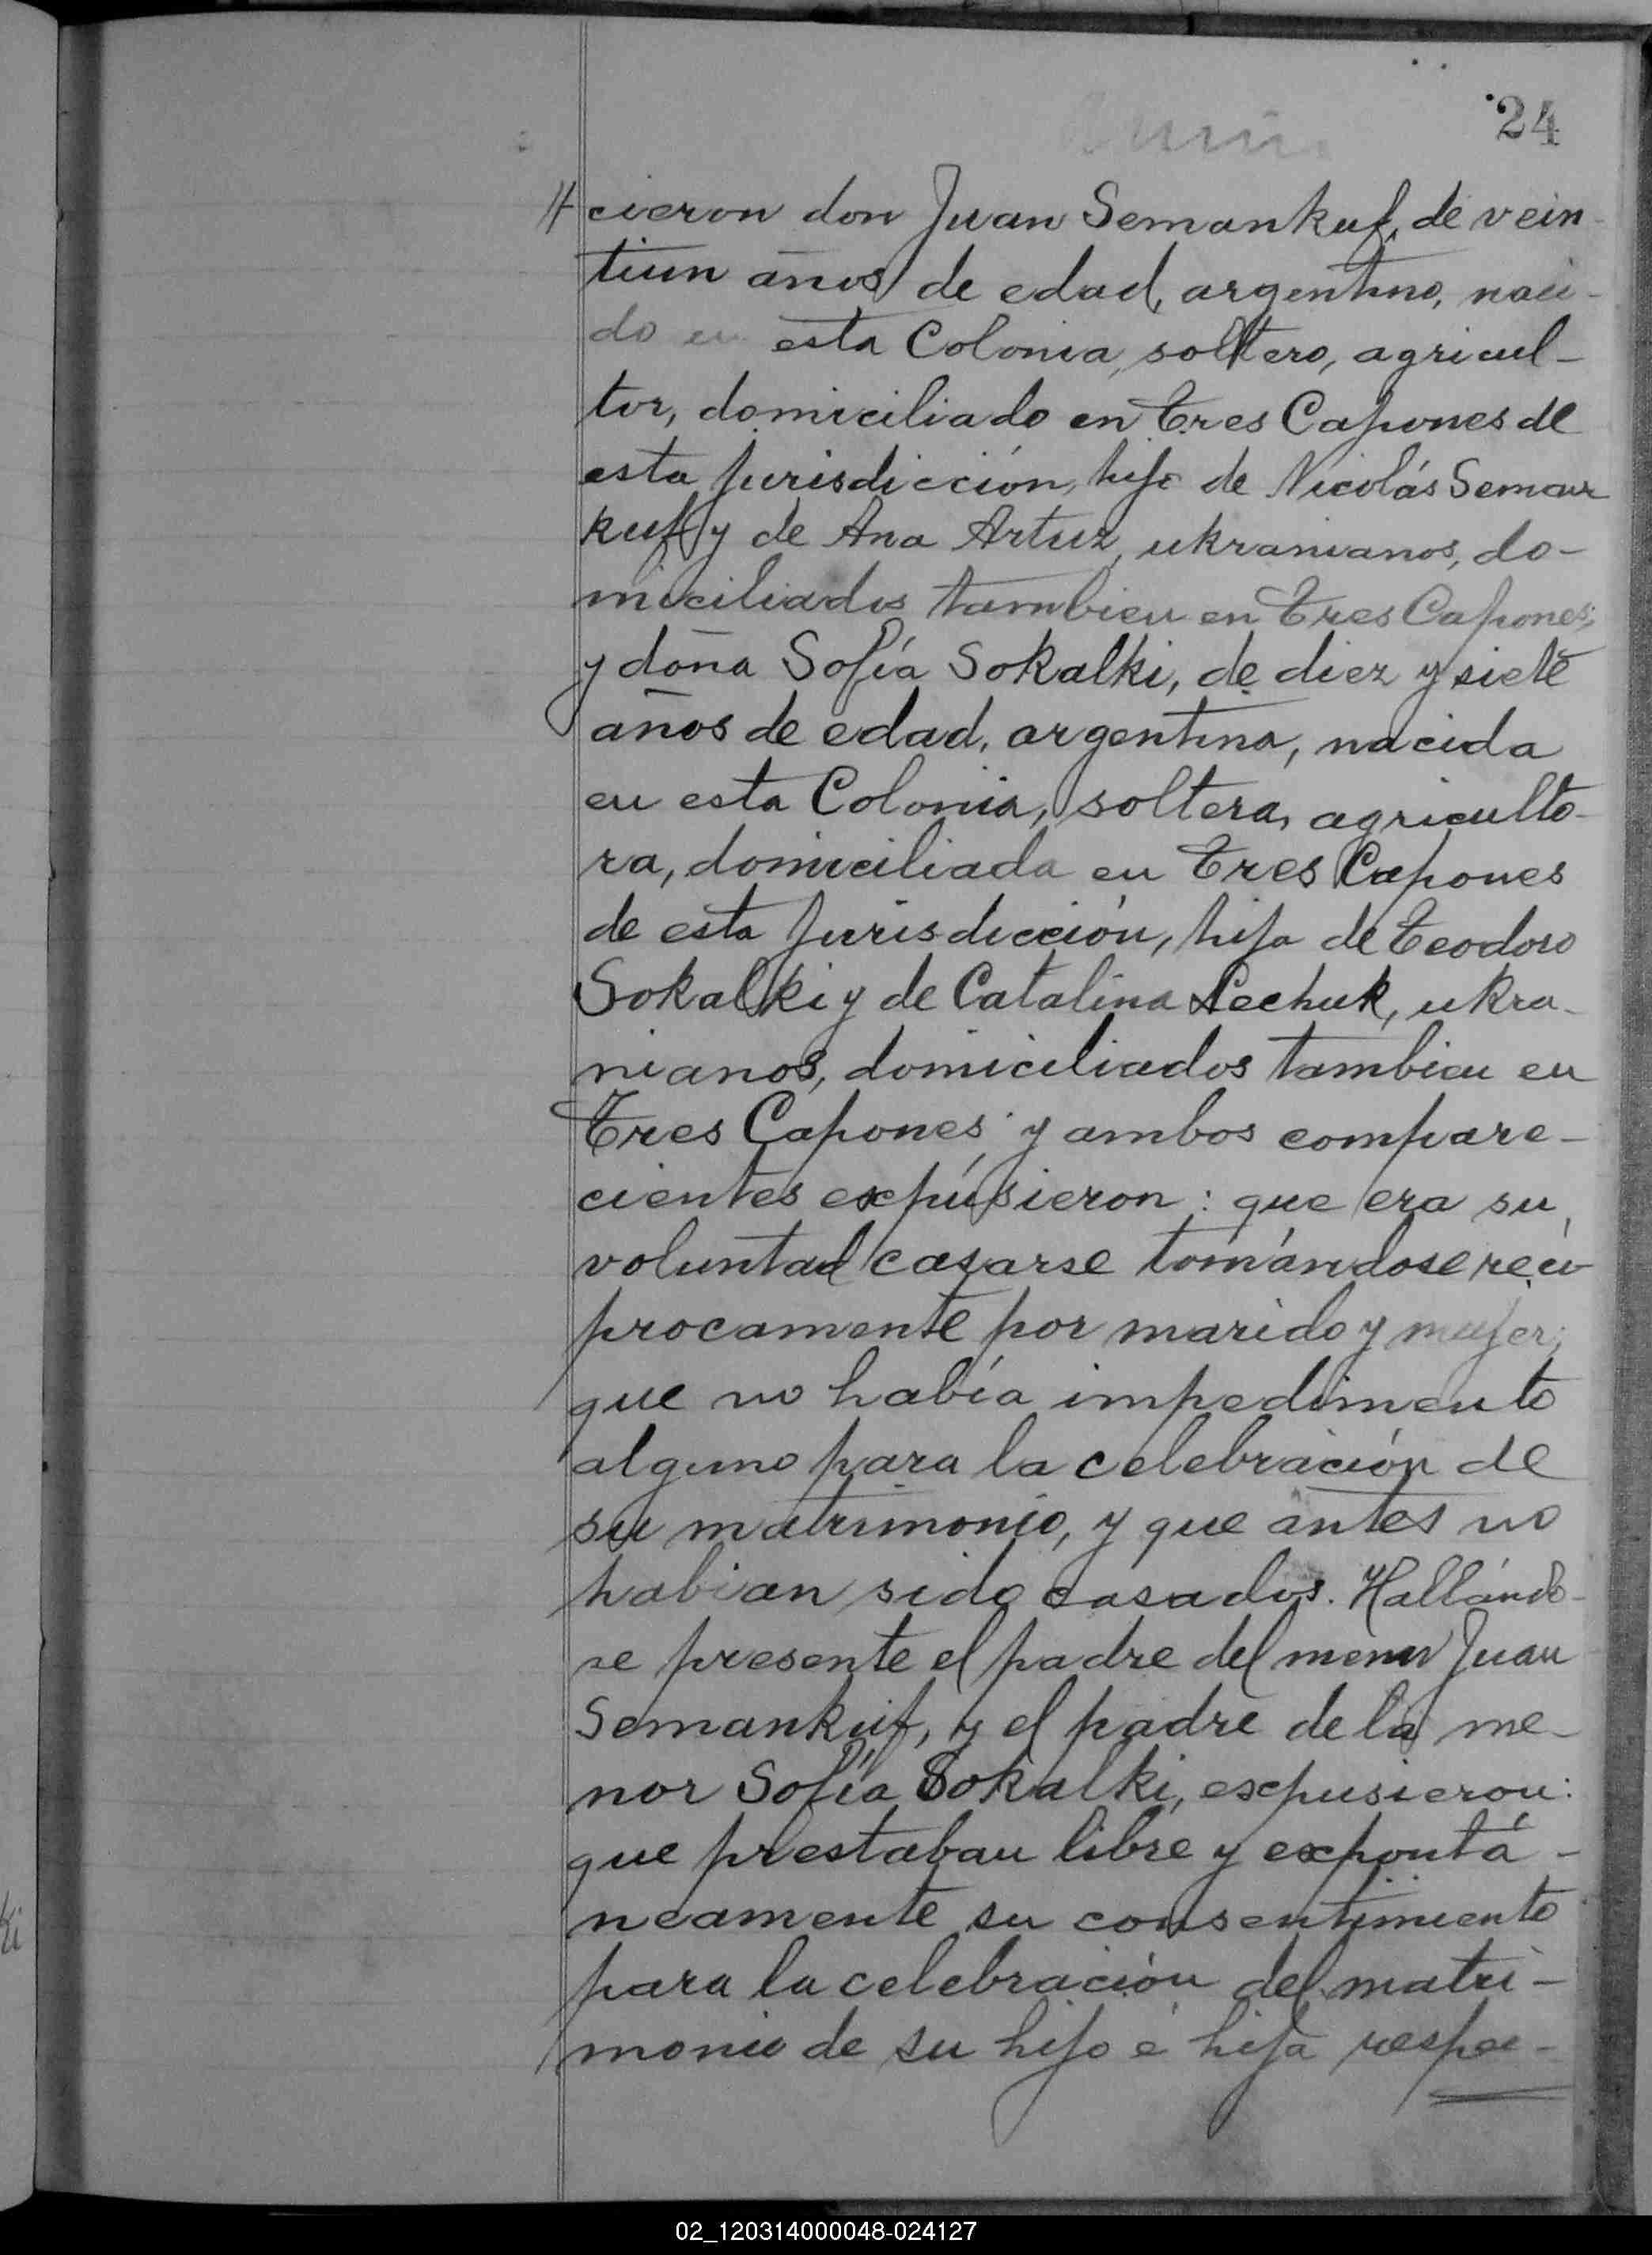 24
cieron don Juan Semankuf, de vein-
tiun años de edad, argentino, naci-
do en esta Colonia, soltero, agricul-
tor, domiciliado en Tres Capones de
esta Jurisdicción, hijo de Nicolás Seman
kuf y de Ana Artuz, ukranianos, do-
miciliados tambien en Tres Capones;
y doña Sofía Sokalki, de diez y siete
años de edad, argentina, nacida
en esta Colonia, soltera, agriculto-
ra, domiciliada en Tres Capones
de esta Jurisdicción, hija de Teodoro
Sokalki y de Catalina Lechuk, ukra-
nianos, domiciliados tambien en
Tres Capones; y ambos compare-
cientes expusieron: que era su
voluntad casarse tomándose recí-
procamente por marido y mujer;
que no había impedimento
alguno para la celebración de
su matrimonio, y que antes no
habian sido casados. Hallándo-
se presente el padre del menor Juan
Semankuf, y el padre de la me-
nor Sofía Sokalki, expusieron:
que prestaban libre y expontá-
neamente su consentimiento
para la celebración del matri-
monio de su hijo é hija respec-
ki
02_120314000048-024127